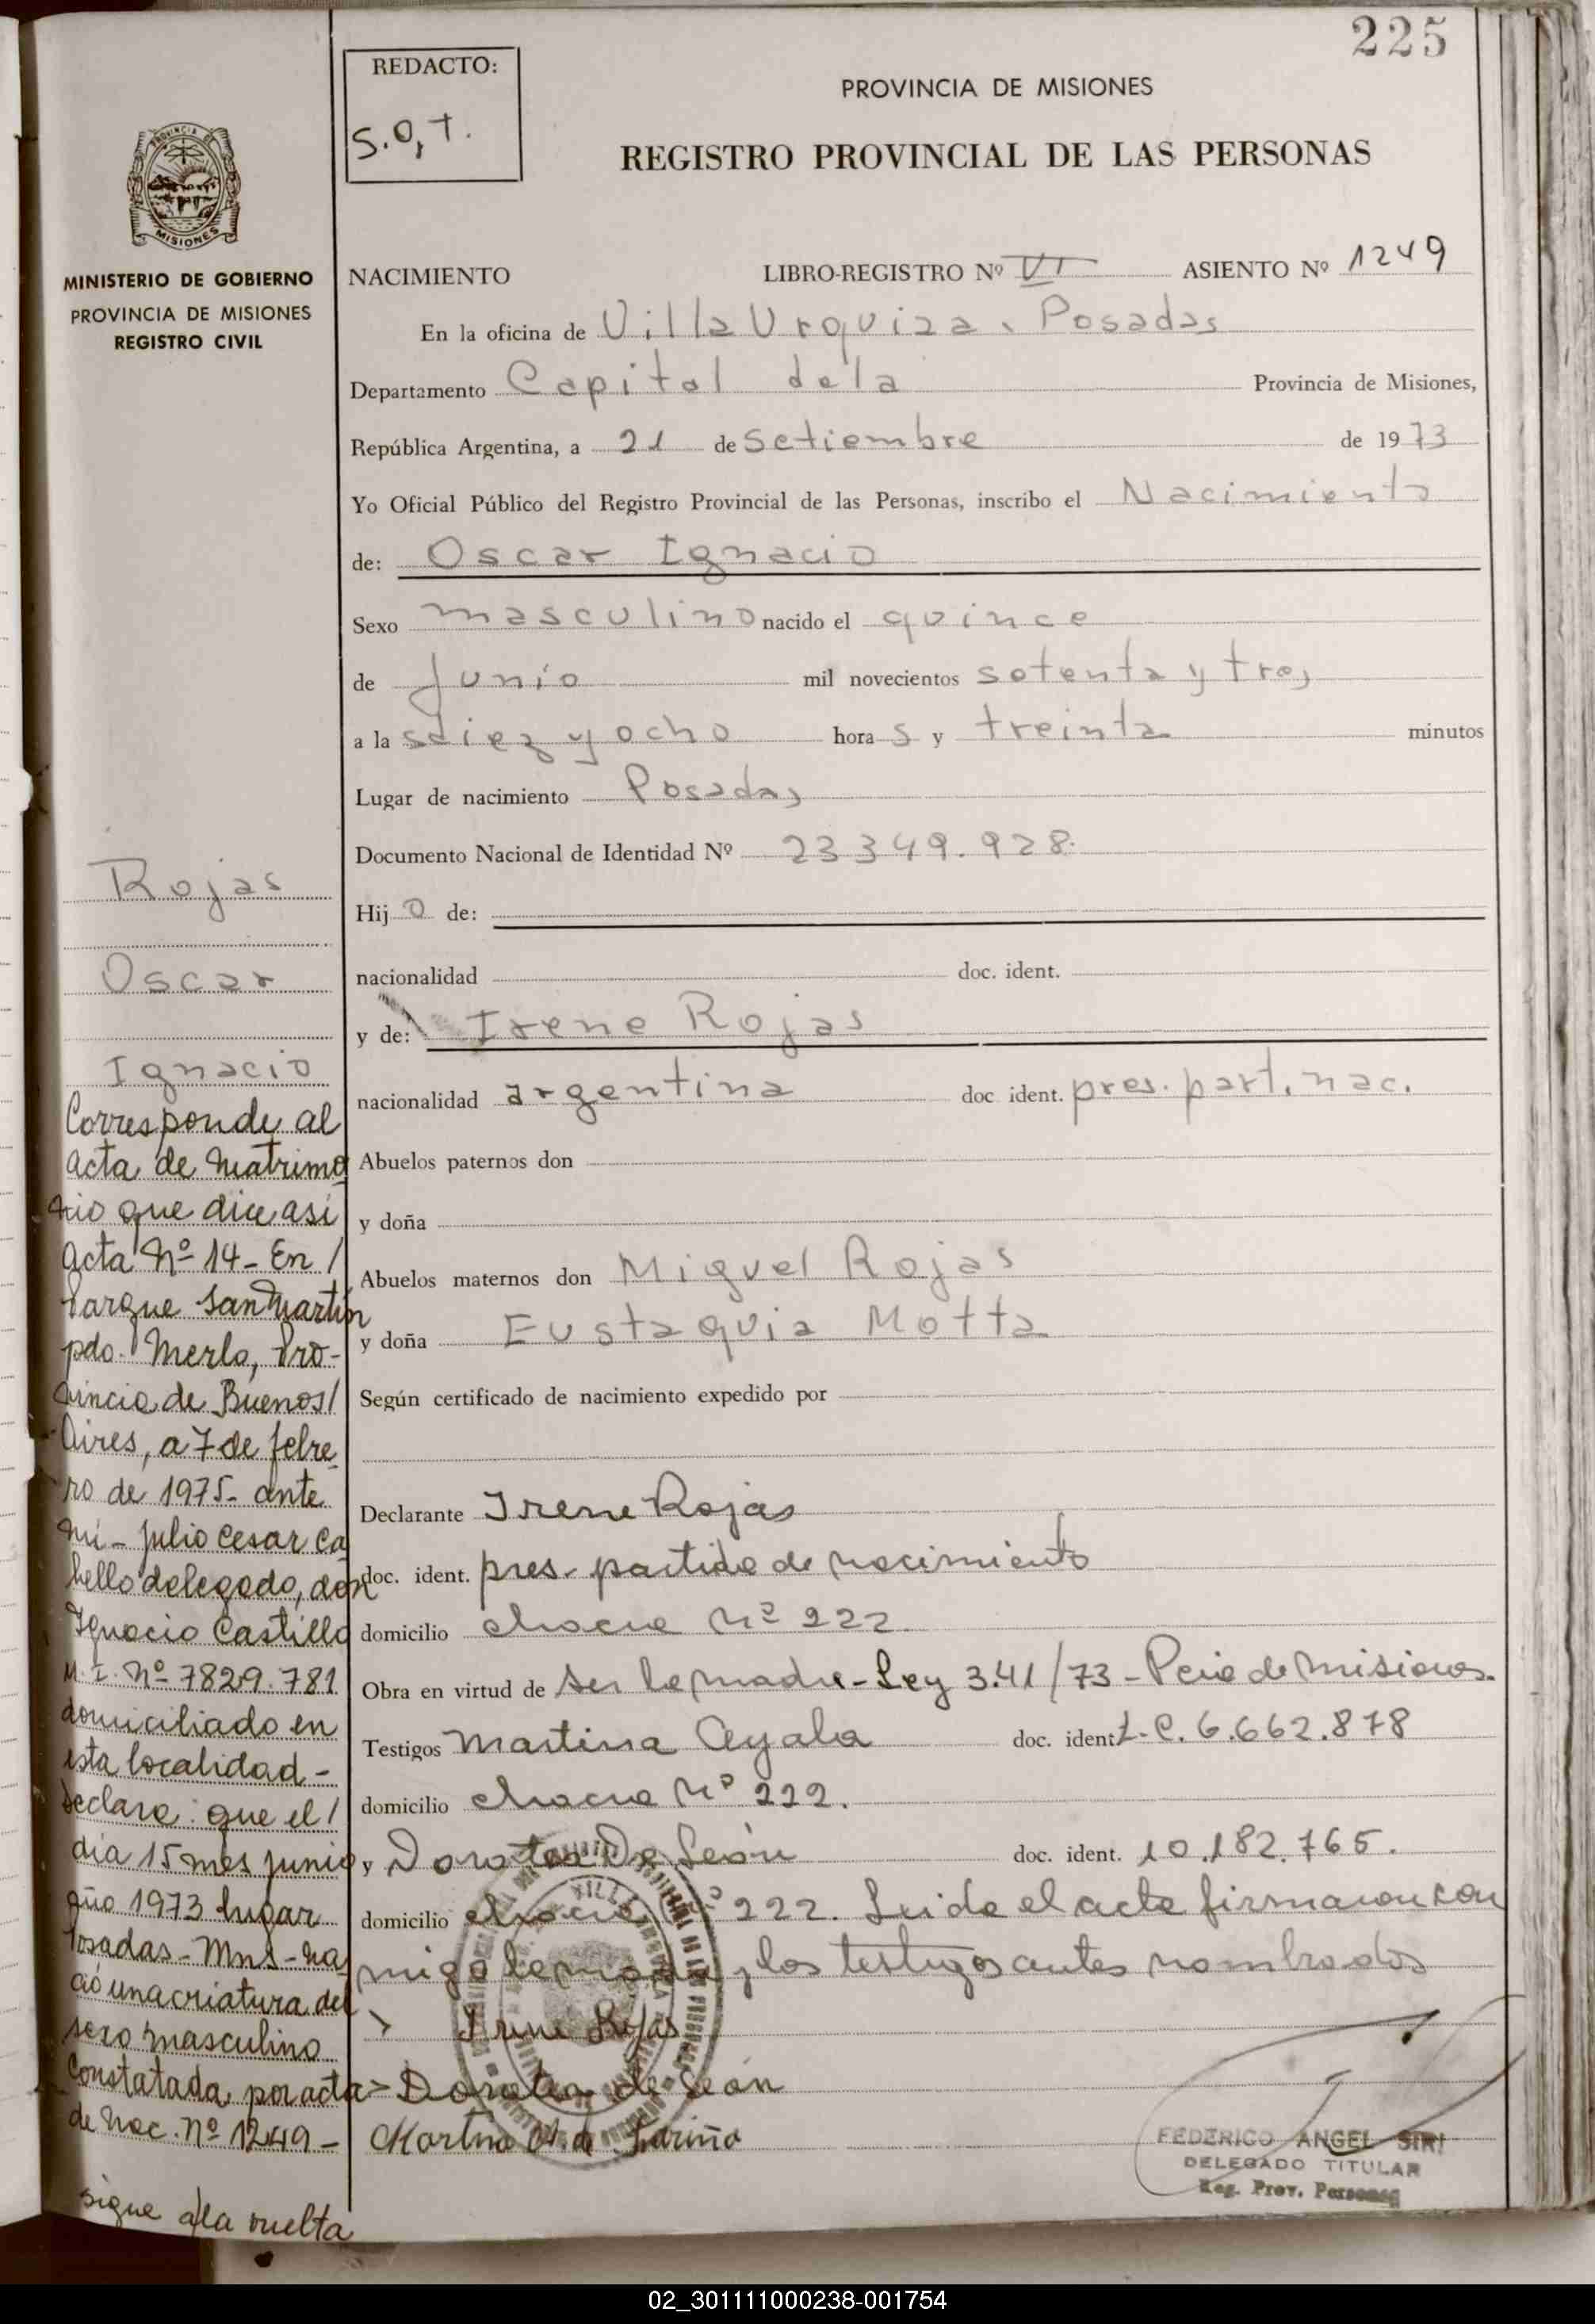 225
REDACTO:
S.O,T.
PROVINCIA DE MISIONES
REGISTRO PROVINCIAL DE LAS PERSONAS
PROVINCIA DE
MISIONES
MINISTERIO DE GOBIERNO
PROVINCIA DE MISIONES
REGISTRO CIVIL
NACIMIENTO LIBRO-REGISTRO Nº VI ASIENTO Nº 1249
En la oficina de Villa Urquiza. Posadas
Departamento Capital dela Provincia de Misiones,
República Argentina, a 21 de Setiembre de 1973
Yo Oficial Público del Registro Provincial de las Personas, inscribo el Nacimiento
de: Oscar Ignacio
Sexo masculino nacido el quince
de Junio mil novecientos setenta y tres
a la s diez y ocho hora s y treinta minutos
Lugar de nacimiento Posadas
Documento Nacional de Identidad Nº 23349.928.
Hij o de:
nacionalidad doc. ident.
y de: Irene Rojas
nacionalidad argentina doc ident. pres. part. nac.
Abuelos paternos don
y doña
Abuelos maternos don Miguel Rojas
y doña Eustaquia Motta
Según certificado de nacimiento expedido por
Declarante Irene Rojas
doc. ident. pres. partida de nacimiento
domicilio chacra Nº 222.
Obra en virtud de ser la madre - Ley 3.41/73 - Pcia de Misiones.
Testigos Martina Ayala doc. ident. L.C. 6.662.878
domicilio chacra Nº 222.
y Dorotea De León doc. ident. 10.182.765.
domicilio chacra Nº 222. Leida el acta firmaron con
migo la madre y los testigos antes nombrados
Irene Rojas
Dorotea de León
Martina A. de
FEDERICO ANGEL SIRI
DELEGADO TITULAR
Reg. Prov. Personas
Rojas
Oscar
Ignacio
Corresponde al
acta de Matrimo
nio que dice asi
acta Nº 14 - En /
Parque San Martin
pdo. Merlo, Pro-
vincia de Buenos /
Aires, a 7 de febre
ro de 1975 - ante
mi - Julio Cesar Ca
bello delegado, don
Ignacio Castillo
M.I. Nº 7829.781
domiciliado en
esta localidad -
declara: que el /
dia 15 mes junio
año 1973 lugar
Posadas - Mns - na
ció una criatura del
sexo masculino
Constatada por acta
de Nac. Nº 1249 -
sigue a la vuelta
02_301111000238-001754